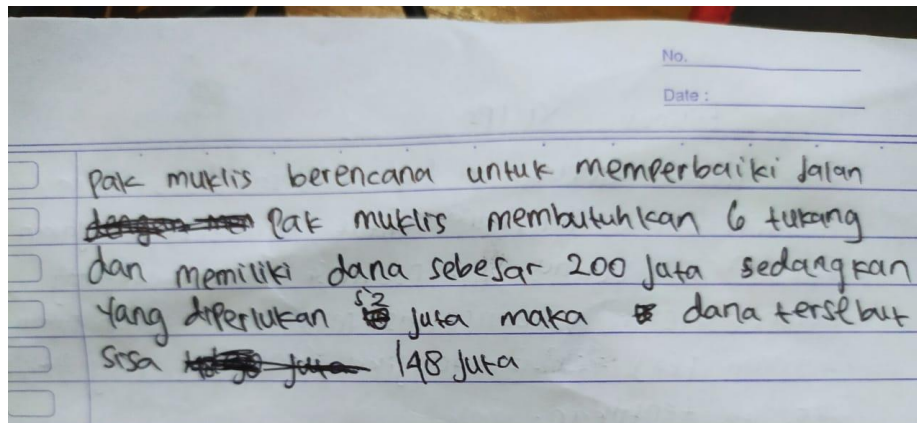 No.
Date :
Pak muklis berencana untuk memperbaiki Jalan
Pak muklis membutuhkan 6 tukang
dan memiliki dana sebesar 200 Juta sedangkan
yang diperlukan 52 juta maka dana tersebut
sisa 148 Juta